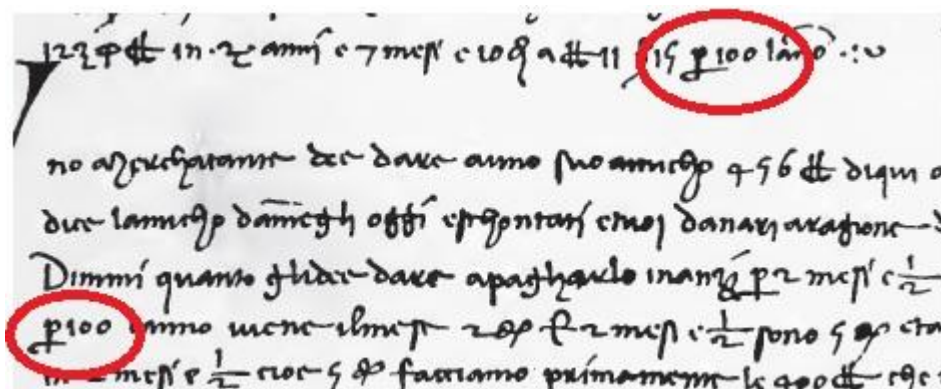 in 2 anni e 7 mesi e 10 a 11 15 ꝑ 100 lāno
no merchatante dee dare auno suo amicho 456 diqui a
dice lamicho dāmegli oggi eschontati etuoi danari aragione
Dimmi quanto glidee dare apagharlo inanzi ꝑ 2 mesi e 1/2
ꝑ 100 lanno viene ilmese 2 2 mesi e 1/2 sono 5
in 2 mesi e 1/2 cioe 5 facciamo primamente le 400 che